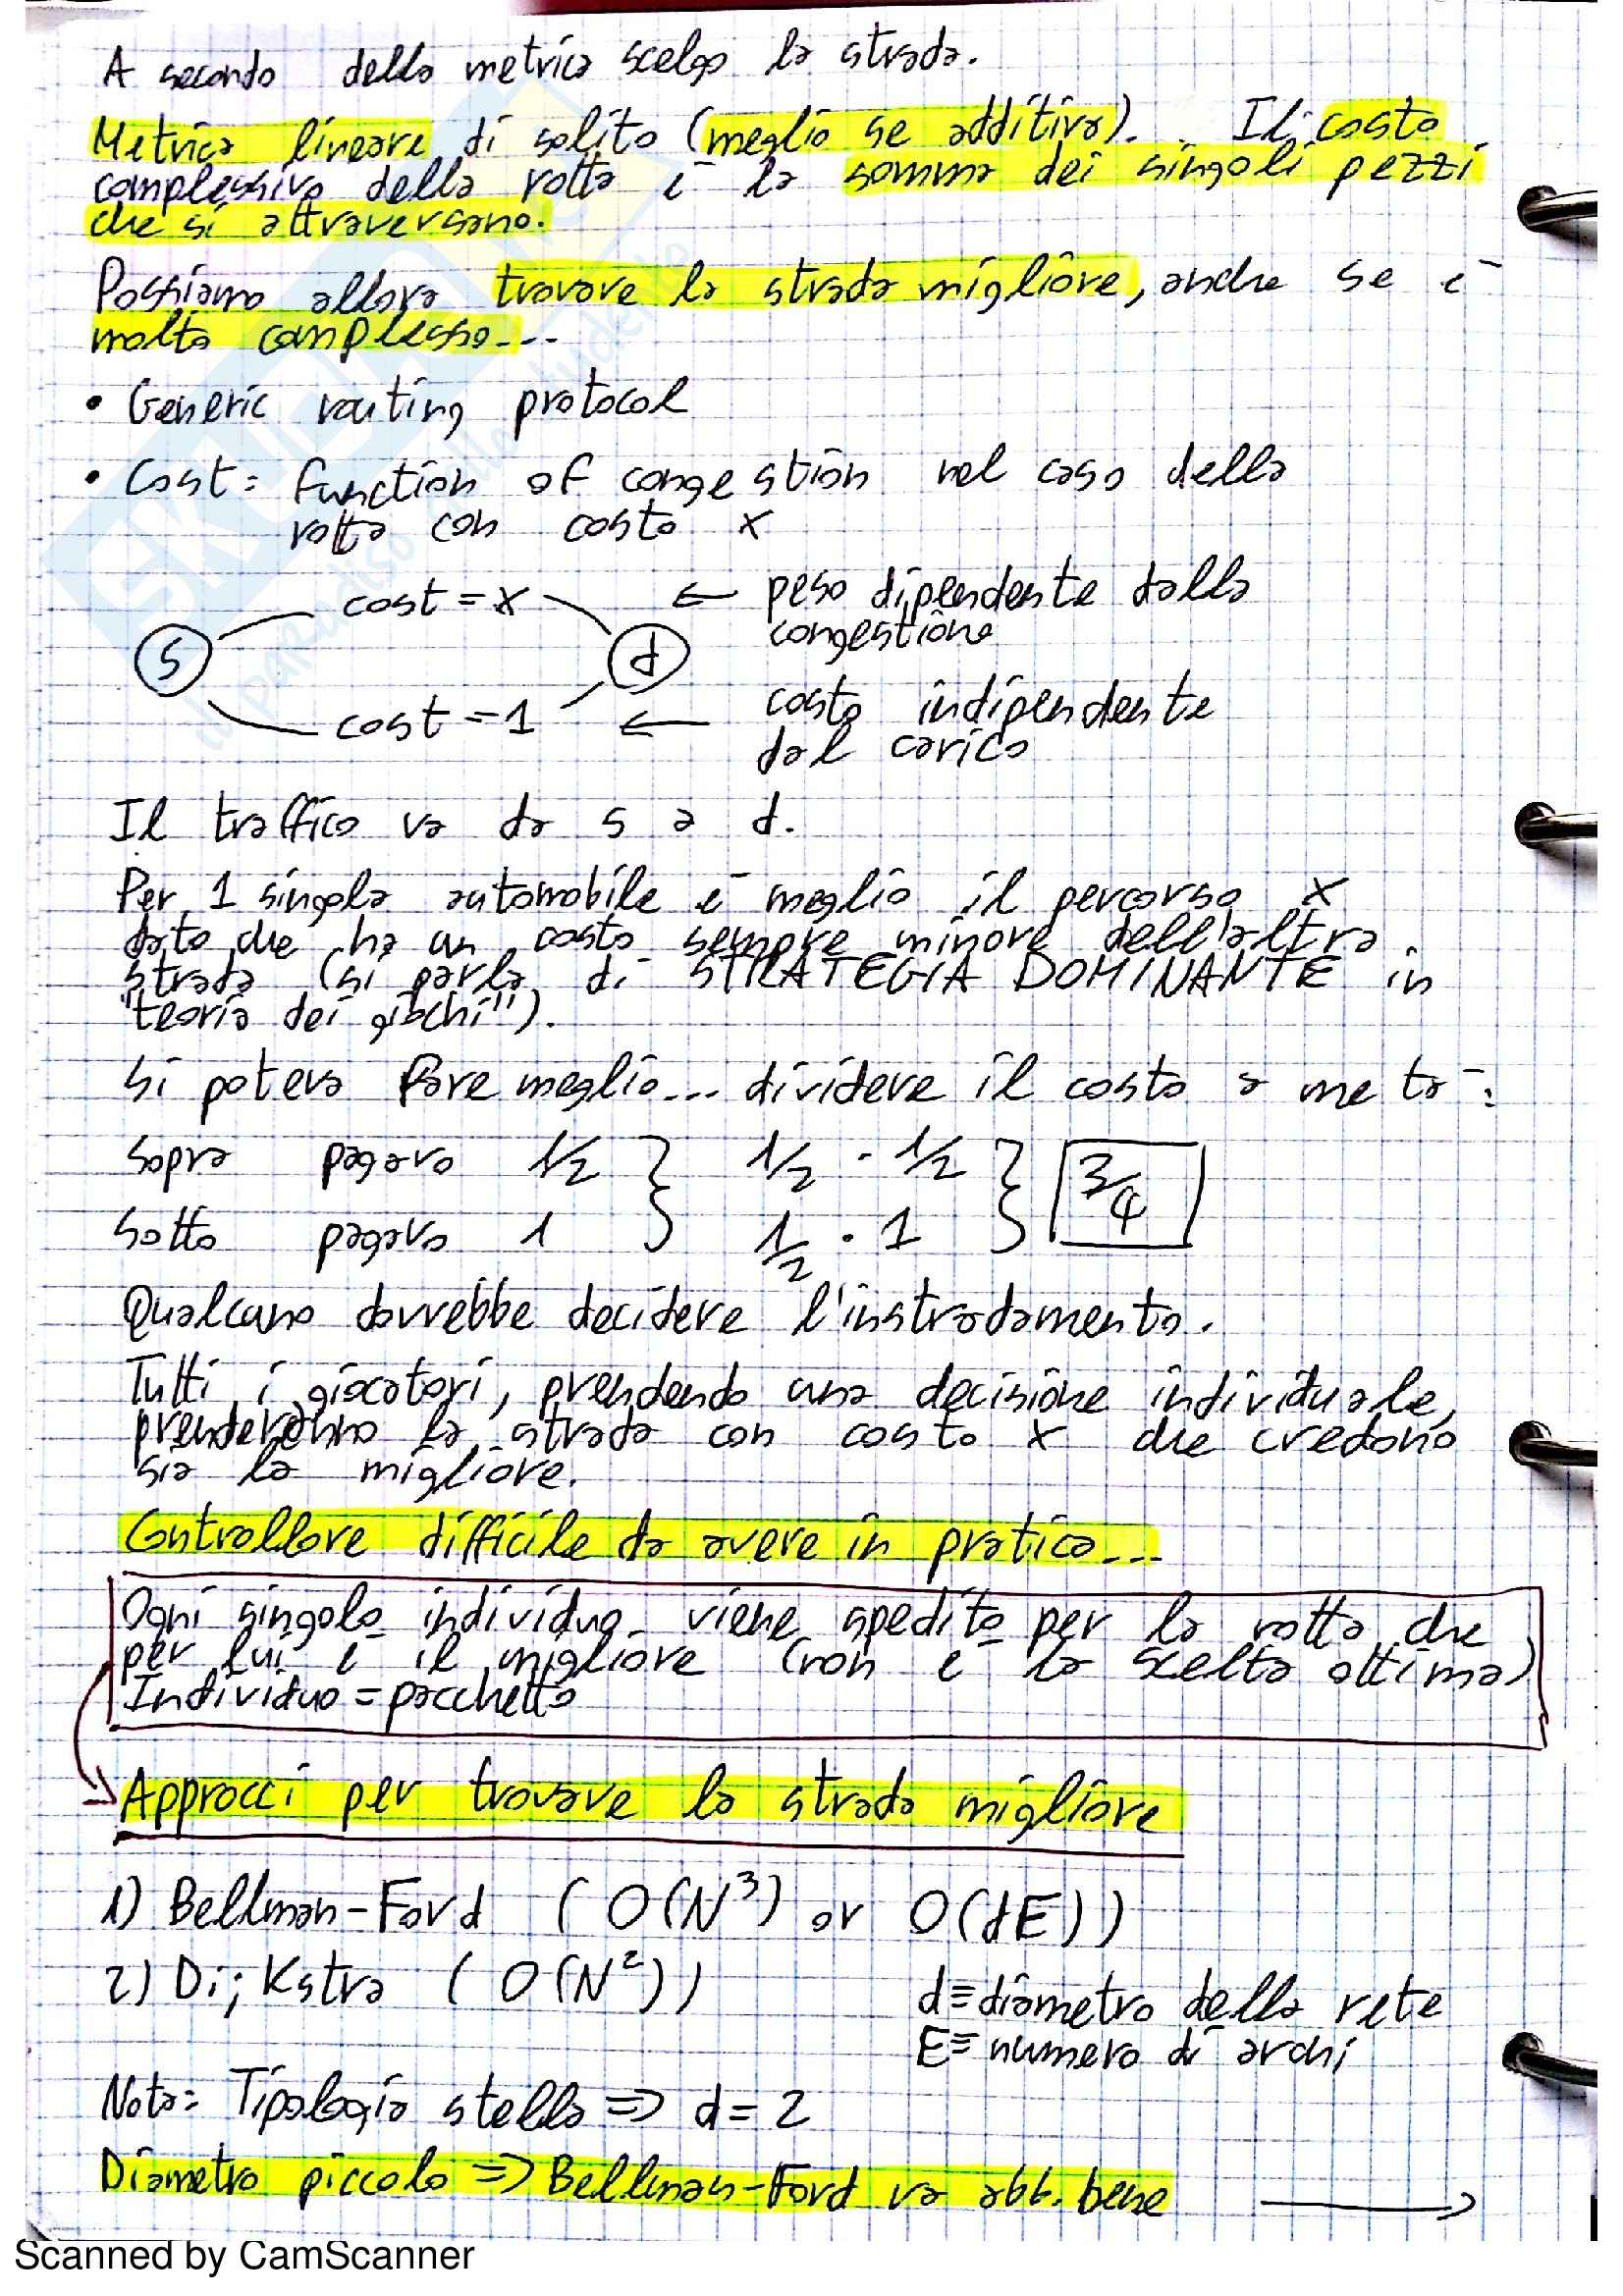 A secondo della metrica scelgo la strada.
Metrica lineare di solito (meglio se additiva). Il costo
complessivo della rotta è la somma dei singoli pezzi
che si attraversano.
Possiamo allora trovare la strada migliore, anche se è
molto complesso...
• Generic routing protocol
• Cost: function of congestion nel caso della
rotta con costo x
cost = x ← peso dipendente dalla
congestione
s d
cost = 1 ← costo indipendente
dal carico
Il traffico va da s a d.
Per 1 singola automobile è meglio il percorso x
dato che ha un costo sempre minore dell'altra
strada (si parla di STRATEGIA DOMINANTE in
"teoria dei giochi").
Si poteva fare meglio... dividere il costo a metà:
Sopra pagavo 1/2 } 1/2 · 1/2 } 3/4
Sotto pagavo 1 1/2 · 1
Qualcuno dovrebbe decidere l'instradamento.
Tutti i giocatori, prendendo una decisione individuale,
prenderanno la strada con costo x che credono
sia la migliore.
Controllore difficile da avere in pratica...
Ogni singolo individuo viene spedito per la rotta che
per lui è il migliore (non è la scelta ottima)
Individuo = pacchetto
Approcci per trovare la strada migliore
1) Bellman-Ford ( O(N³) or O(dE))
2) Dijkstra ( O(N²))
d≡diametro della rete
E≡ numero di archi
Nota: Tipologia stella ⇒ d=2
Diametro piccolo ⇒ Bellman-Ford va abb. bene →
Scanned by CamScanner